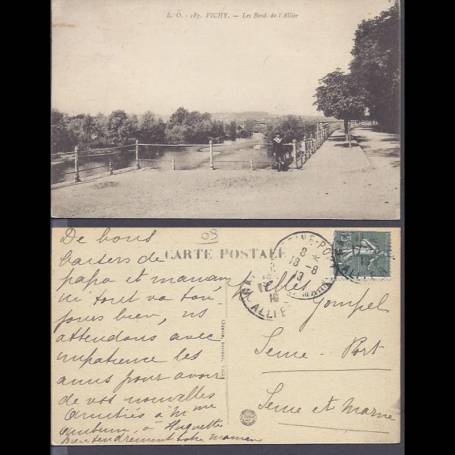 L. O. - 187. VICHY. - Les Bords de l'Allier
09
CARTE POSTALE
De bons
baisers de
papa et maman,
ici tout va tou-
jours bien, ns
attendons avec
impatience les
amis pour avoir
de vos nouvelles
Amitiés à M me
à Huguette
bien tendrement votre maman
Seine-Port
Seine et Marne
SEINE-PORT
8
18-8
13
ALLIER